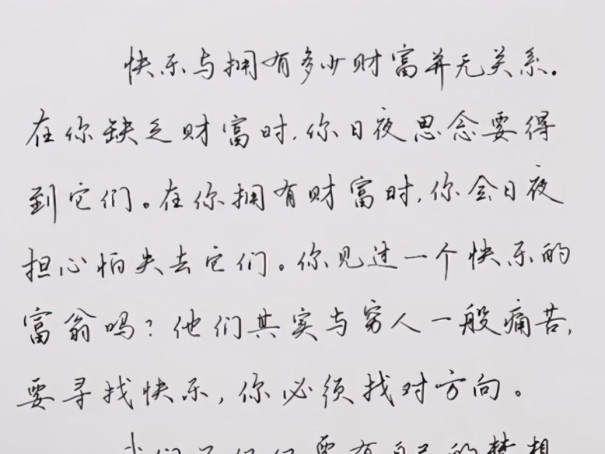 快乐与拥有多少财富并无关系.
在你缺乏财富时,你日夜思念要得
到它们。在你拥有财富时,你会日夜
担心怕失去它们。你见过一个快乐的
富翁吗?他们其实与穷人一般痛苦,
要寻找快乐,你必须找对方向。